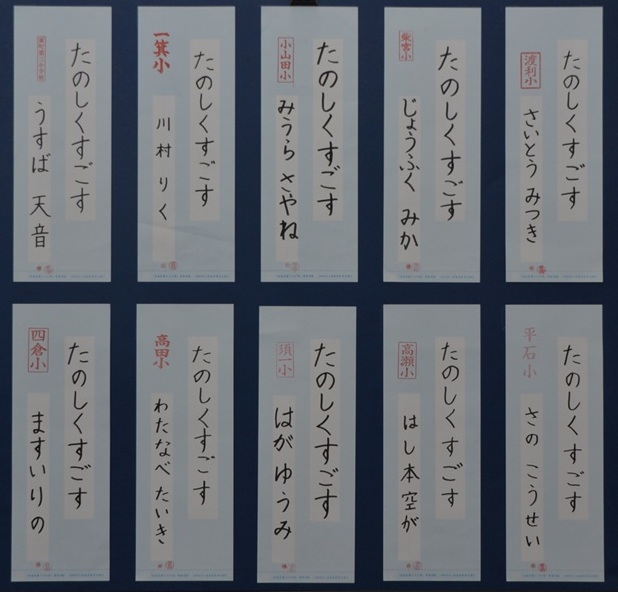 たのしくすごす
渡利小
さいとう みつき
たのしくすごす
じょうふく みか
たのしくすごす
小山田小
みうら さやね
たのしくすごす
一箕小
川村 りく
たのしくすごす
うすば 天音
たのしくすごす
平石小
さの こうせい
たのしくすごす
高瀬小
はし本空が
たのしくすごす
須一小
はが ゆうみ
たのしくすごす
高田小
わたなべ たいき
たのしくすごす
四倉小
ますいりの